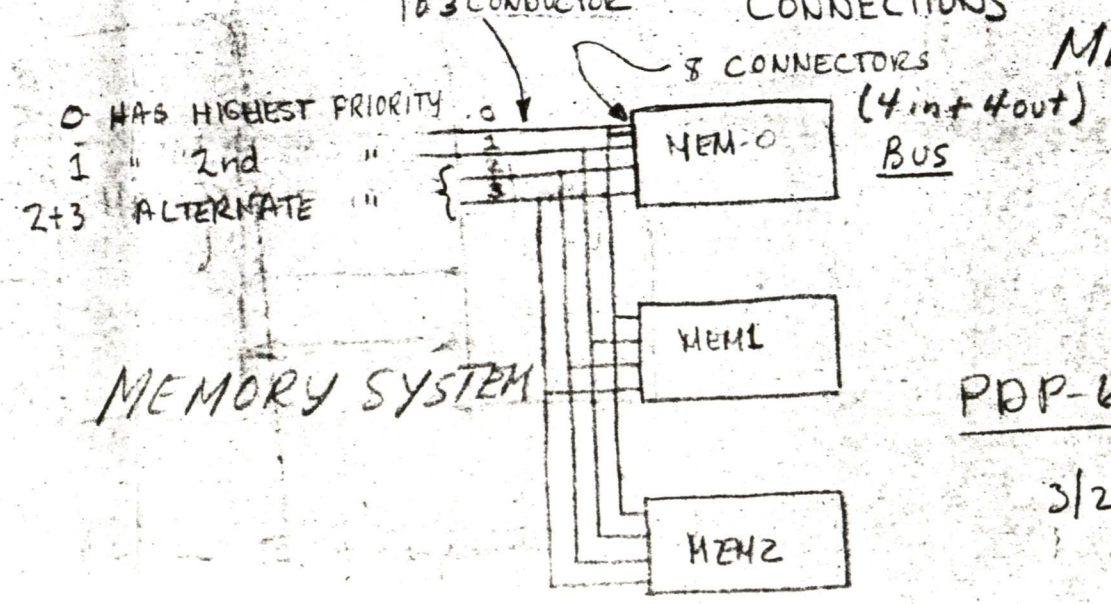 103 CONDUCTOR
CONNECTIONS
8 CONNECTORS
(4 in + 4 out)
BUS
0 HAS HIGHEST PRIORITY
1 " 2nd "
2+3 " ALTERNATE "
0
1
2
3
MEM-0
MEM1
MEM2
MEMORY SYSTEM
PDP-6
3/2